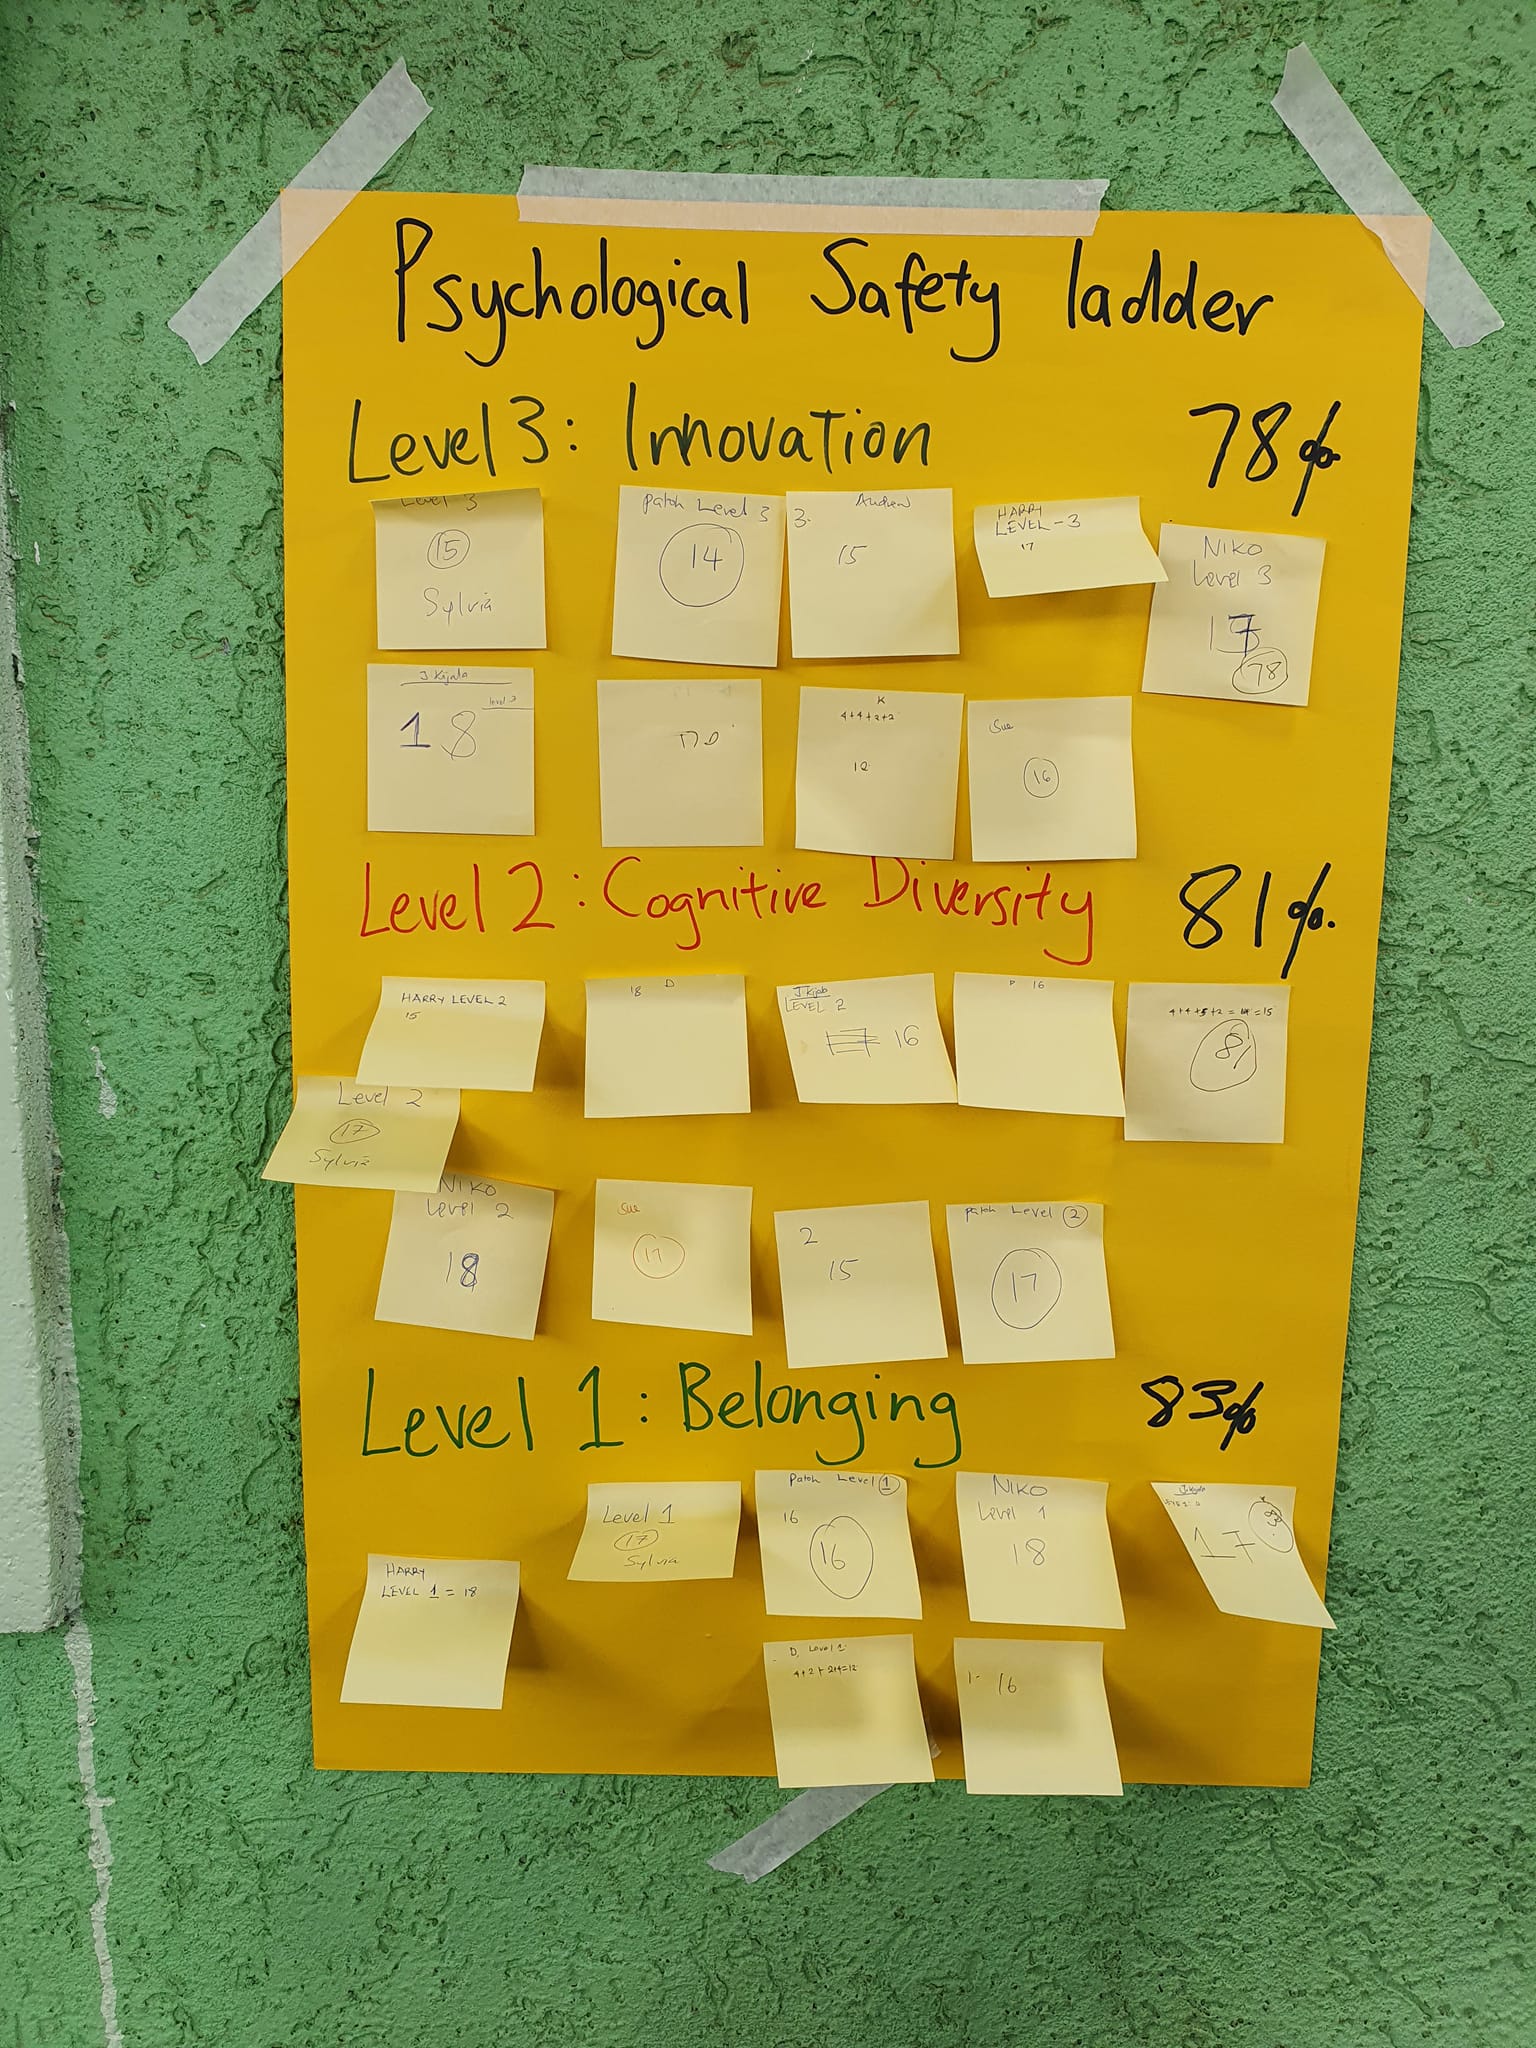 Psychological Safety ladder
Level 3: Innovation 78%
Level 3
15
Sylvia
patch Level 3
14
3. Andrew
15
HARRY
LEVEL-3
17
NIKO
Level 3
17
78
J Kijala
level 3
18
K
4+4+2+2
12
Sue
16
Level 2: Cognitive Diversity 81%.
HARRY LEVEL 2
15
18 D
J Kijala
LEVEL 2
16
P 16
4+4+5+2 = = 15
81
Level 2
17
Sylvia
NIKO
Level 2
18
Sue
17
2
15
patch Level 2
17
Level 1: Belonging 83%
HARRY
LEVEL 1 = 18
Level 1
17
Sylvia
patch Level 1
16
16
NIKO
Level 1
18
17
83
D, Level 1
4+2+2+4=12
1- 16